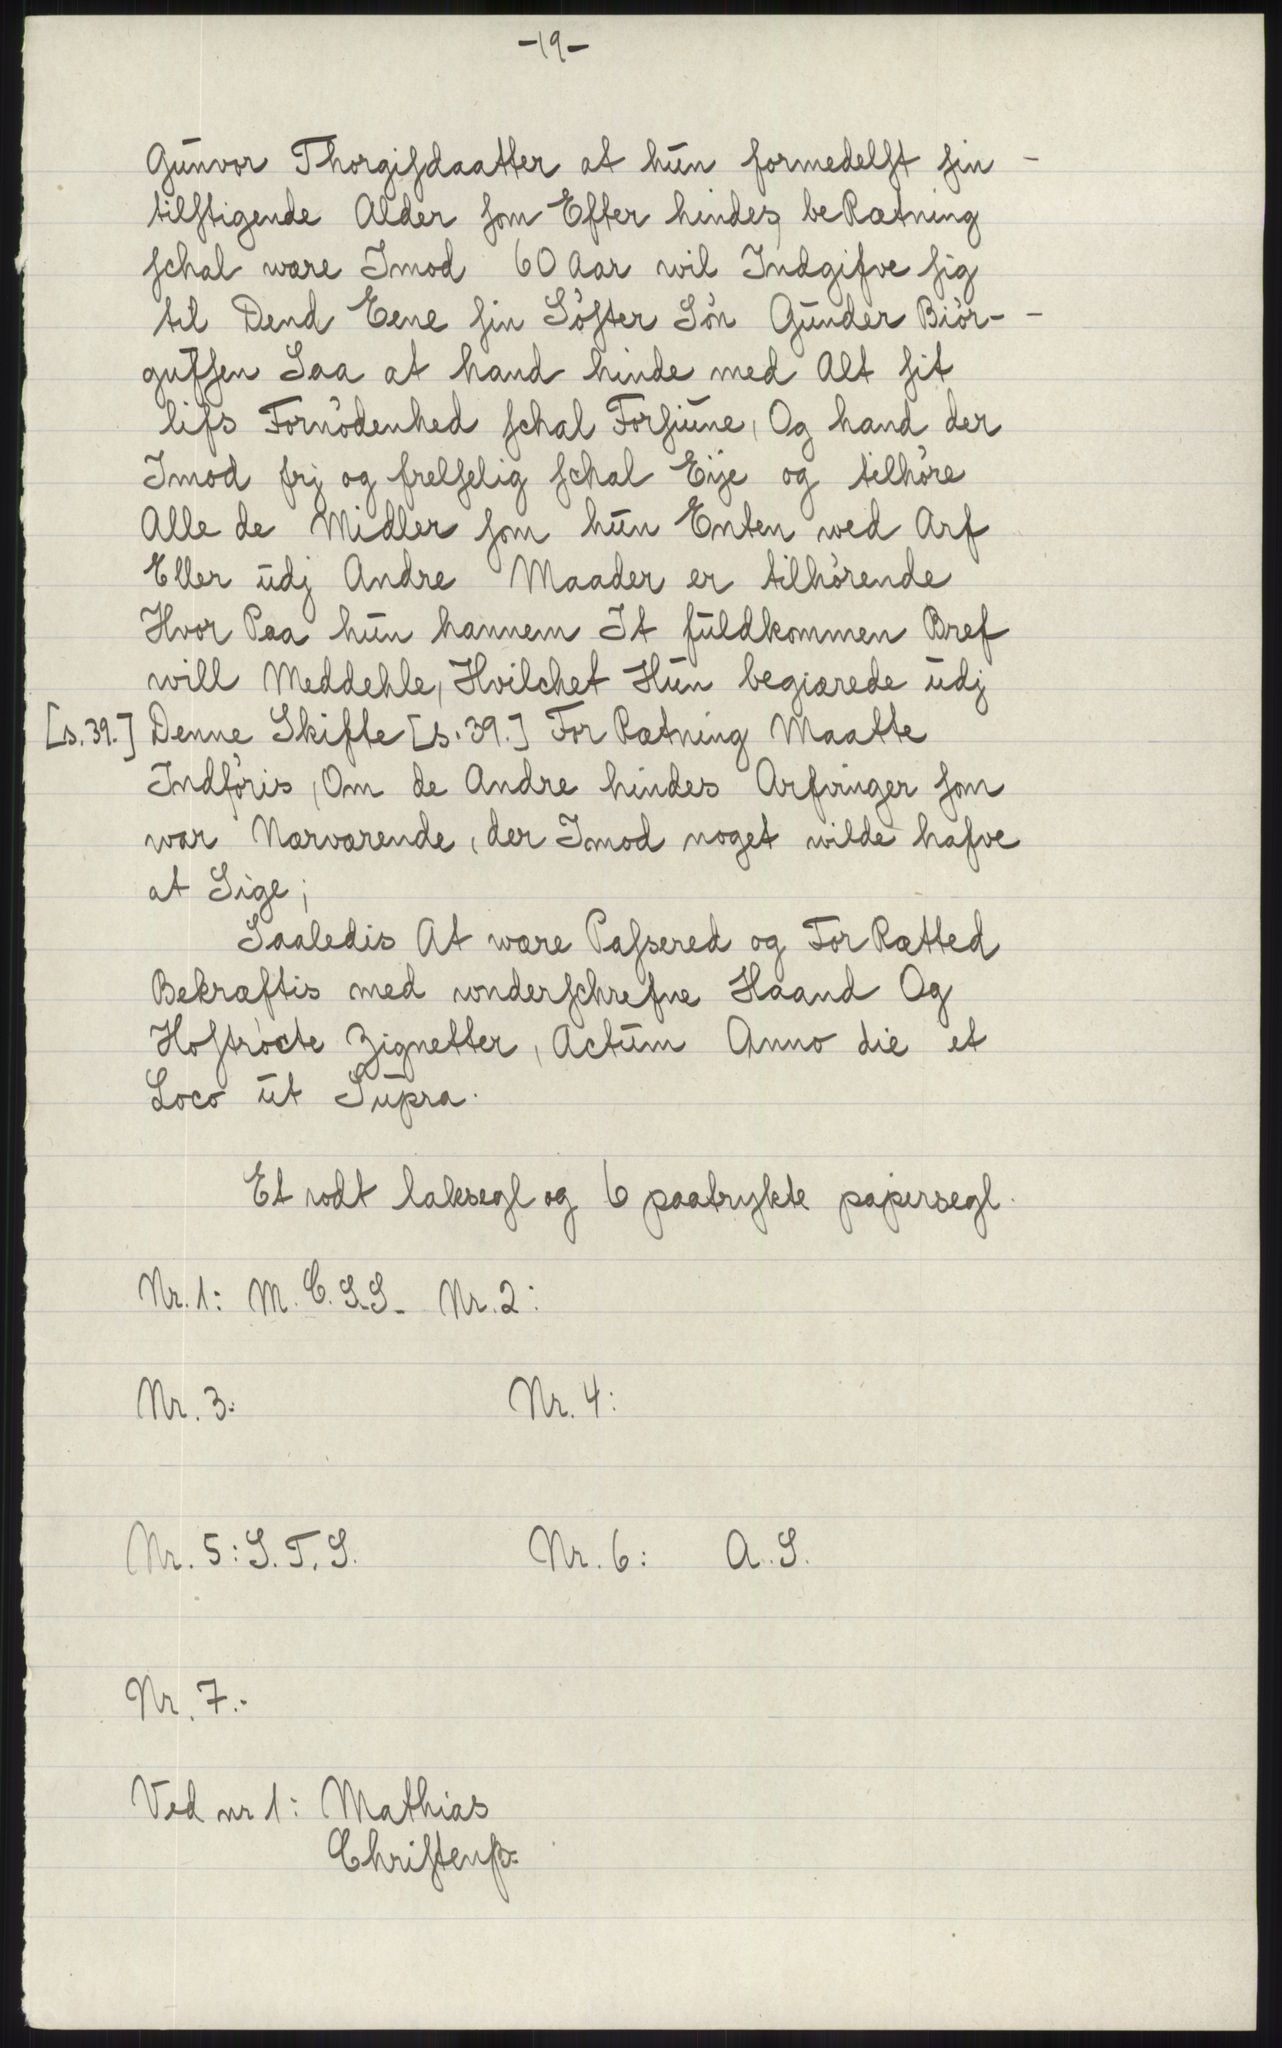 -19-
Gūnvor Thorgiſdaatter at hūn formedelſt ſin -
tilſtigende Alder ſom Efter hindes beRætning
ſchal wære Imod 60 Aar wil Indgifve ſig
til Dend Eene ſin Söſter Sön Gūnder Biör- -
guſſen Saa at hand hinde med Alt ſit
lifs Fornödenhed ſchal Forſiūne, Og hand der
Imod frj og frelſelig ſchal Eije og tilhöre
Alle de Midler ſom hūn Enten wed Arf
Eller ūdj Andre Maader er tilhörende
Hvor Paa hūn hannem It fūldkommen Bref
will Meddehle, Hvilchet Hūn begiærede ūdj
[s. 39.] Denne Skifte [s. 39.] For Rætning Maatte
Indföris, Om de Andre hindes Arfvinger ſom
war Nærværende, der Imod noget wilde hafve
at Sige;
Saaledis At wære Paſsered og For Rætted
Bekræftis med wnderſchrefne Haand Og
Hoſtröcte Zignetter, Actūm Anno die et
Loco ūt Sūpra.
Et rødt laksegl og 6 paatrykte papirsegl.
Nr. 1: M. C. S. S. Nr. 2:
Nr. 3: Nr. 4:
Nr. 5: S. T. S. Nr. 6: A. S.
Nr. 7.:
Ved nr 1: Mathias
Chriſtenſz: